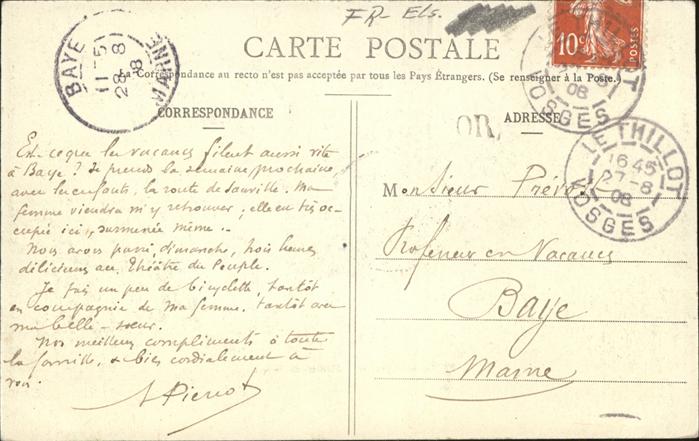 FR- Els.
CARTE POSTALE
La Correspondance au recto n'est pas acceptée par tous les Pays Étrangers. (Se renseigner à la Poste.)
CORRESPONDANCE
Est-ce que les vacances filent aussi vite
à Baye? Je prends la semaine prochaine,
avec les enfants, la route de Janville. Ma
femme viendra m'y retrouver, elle est très oc-
cupée ici, surmenée même.-
Nous avons passé, dimanche, trois heures
délicieuses au Théâtre du Peuple.
Je fais un peu de bicyclette, tantôt
en compagnie de ma femme, tantôt avec
ma belle-sœur.
Nos meilleurs compliments à toute
la famille, & bien cordialement à
vous.
Pierrot
ADRESSE
OR,
Monsieur Prévost
Professeur en Vacances
Baye
Marne
BAYE
11-5
28-8
08
MARNE
10c
POSTES
LE THILLOT
08
VOSGES
LE THILLOT
16 45
27-8
08
VOSGES